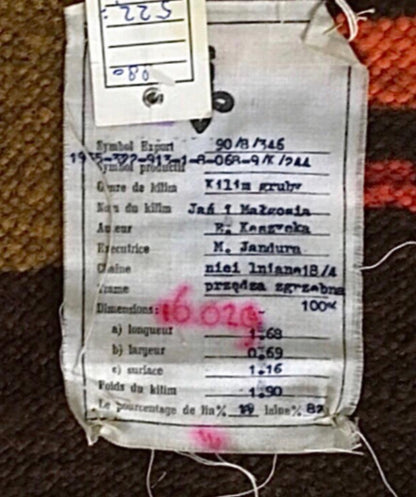 522
080
Symbol Export 90/8/346
Symbol productif
Genre de kilim Kilim gruby
Nom du kilim Jaś i Małgosia
Auteur
Executrice M. Jandura
Chaine nici lniane 18/4
Trame przędza zgrzebna
Dimensions: 100%
6.029
a) longueur 1.68
b) largeur 0.69
c) surface 1.16
Poids du kilim 1.90
Le pourcentage de lin% laine% 82